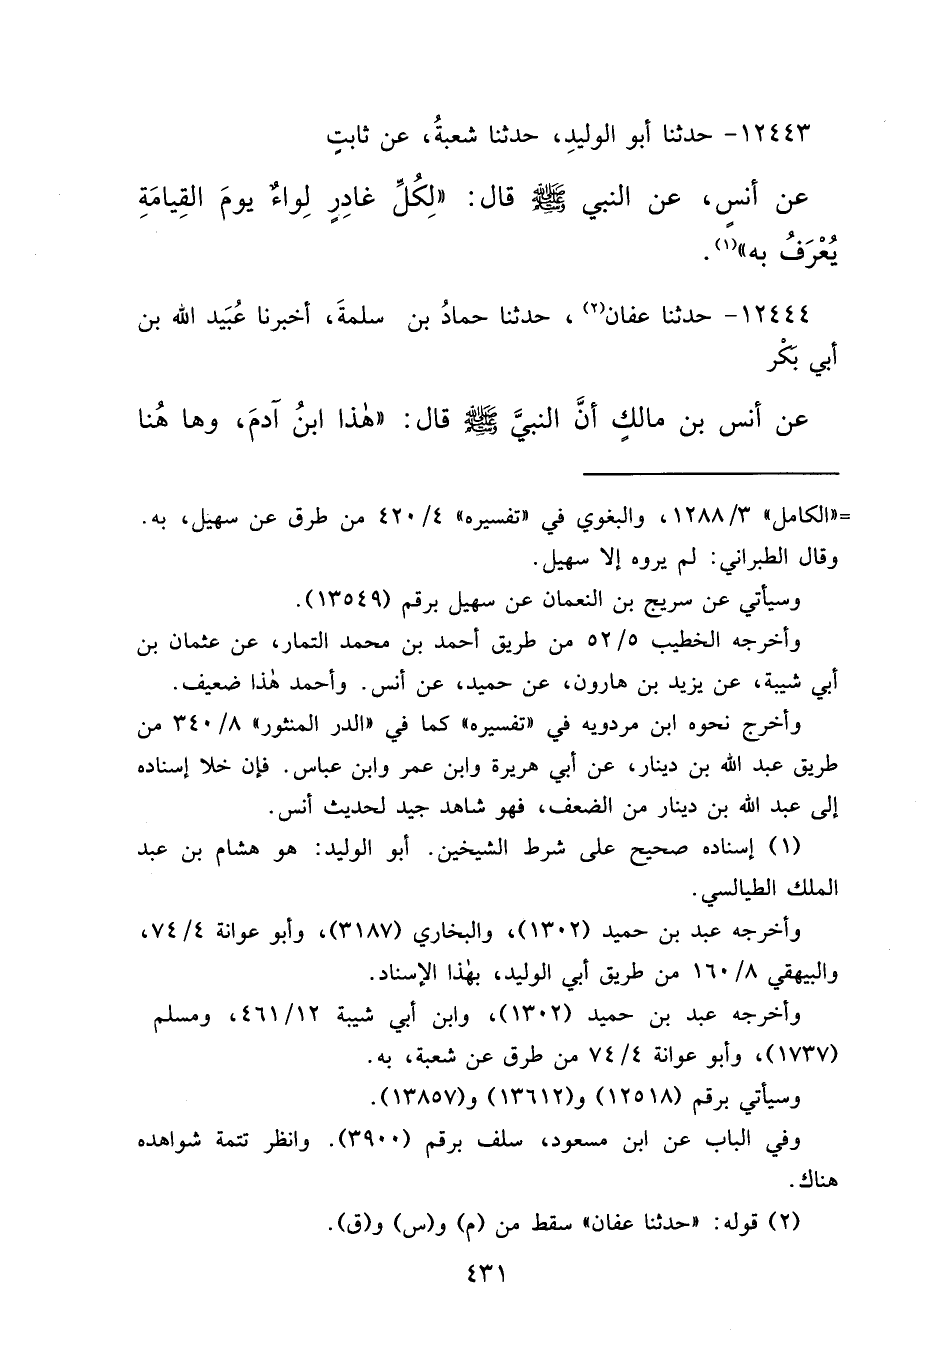 ١٢٤٤٣- حدثنا أبو الوليدِ، حدثنا شعبةُ، عن ثابتٍ
عن أنسٍ، عن النبي ﷺ قال: «لِكُلِّ غادِرٍ لِواءٌ يومَ القِيامَةِ
يُعْرَفُ به»(١).
١٢٤٤٤- حدثنا عفان(٢) ، حدثنا حمادُ بن سلمةَ، أخبرنا عُبَيد الله بن
أبي بَكْر
عن أنس بن مالكٍ أنَّ النبيَّ ﷺ قال: «هٰذا ابنُ آدمَ، وها هُنا
=«الكامل» ١٢٨٨/٣، والبغوي في «تفسيره» ٤٢٠/٤ من طرق عن سهيل، به.
وقال الطبراني: لم يروه إلا سهيل.
وسيأتي عن سريج بن النعمان عن سهيل برقم (١٣٥٤٩).
وأخرجه الخطيب ٥٢/٥ من طريق أحمد بن محمد التمار، عن عثمان بن
أبي شيبة، عن يزيد بن هارون، عن حميد، عن أنس. وأحمد هٰذا ضعيف.
وأخرج نحوه ابن مردويه في «تفسيره» كما في «الدر المنثور» ٣٤٠/٨ من
طريق عبد الله بن دينار، عن أبي هريرة وابن عمر وابن عباس. فإن خلا إسناده
إلى عبد الله بن دينار من الضعف، فهو شاهد جيد لحديث أنس.
(١) إسناده صحيح على شرط الشيخين. أبو الوليد: هو هشام بن عبد
الملك الطيالسي.
وأخرجه عبد بن حميد (١٣٠٢)، والبخاري (٣١٨٧)، وأبو عوانة ٧٤/٤،
والبيهقي ١٦٠/٨ من طريق أبي الوليد، بهٰذا الإسناد.
وأخرجه عبد بن حميد (١٣٠٢)، وابن أبي شيبة ٤٦١/١٢، ومسلم
(١٧٣٧)، وأبو عوانة ٧٤/٤ من طرق عن شعبة، به.
وسيأتي برقم (١٢٥١٨) و(١٣٦١٢) و(١٣٨٥٧).
وفي الباب عن ابن مسعود، سلف برقم (٣٩٠٠). وانظر تتمة شواهده
هناك.
(٢) قوله: «حدثنا عفان» سقط من (م) و(س) و(ق).
٤٣١